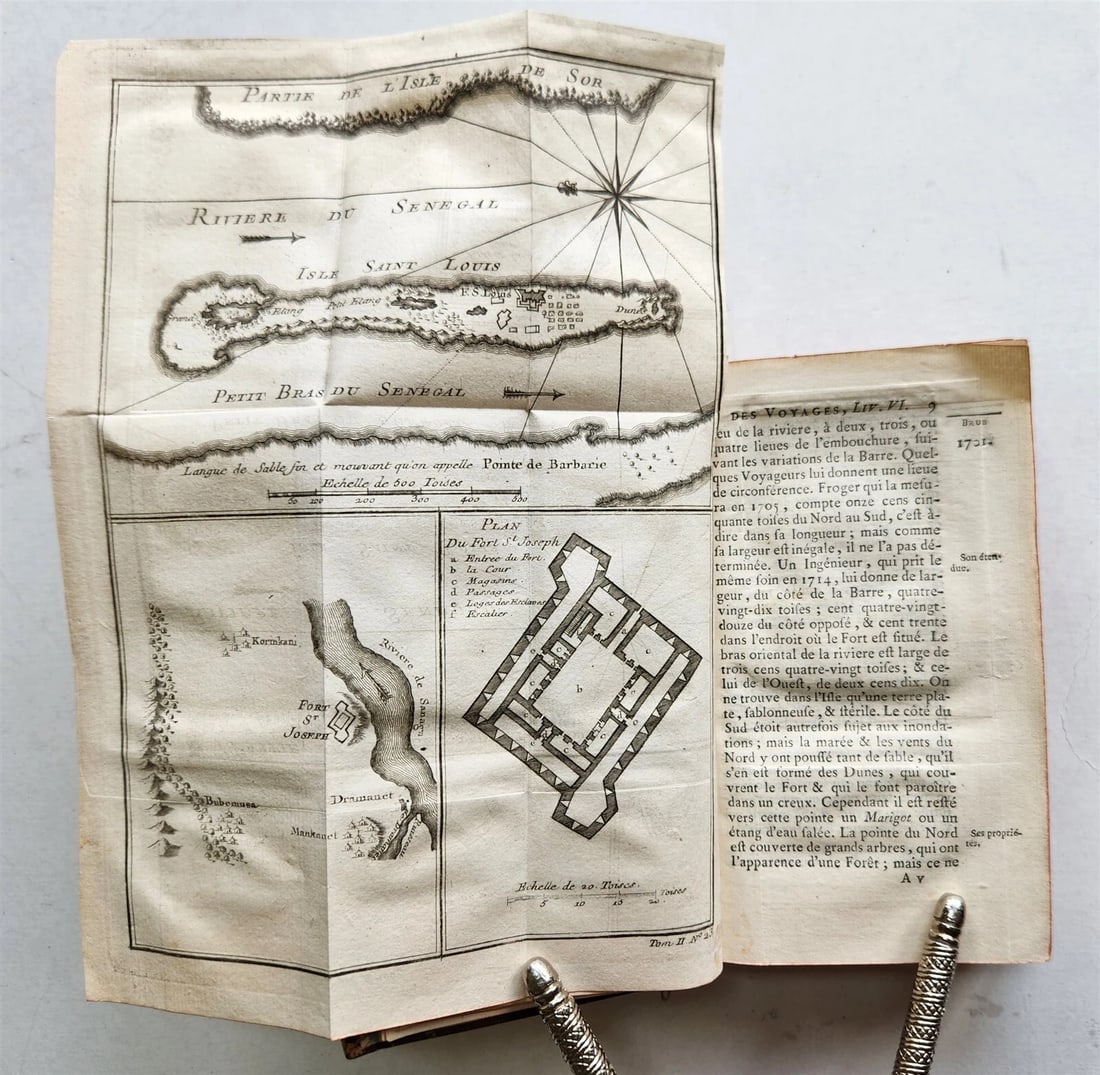 PARTIE DE L'ISLE DE SOR
RIVIERE DU SENEGAL
ISLE SAINT LOUIS
Grand Etang
Petit Etang
F. S. Louis
Dunes
PETIT BRAS DU SENEGAL
Langue de Sable fin et mouvant qu'on appelle Pointe de Barbarie
Echelle de 600 Toises
50 100 200 300 400 500
Kormkani
Riviere de Senega
FORT
St
JOSEPH
Bubemuea
Dramanet
Mankanet
PLAN
Du Fort St. Joseph
a Entrée du Fort.
b la Cour
c Magasins.
d Passages
e Loges des Esclaves
f Escalier
b
Echelle de 20. Toises.
5 10 15 20. Toises
Tom II No. 23
DES VOYAGES, LIV. VI. 9
BRUE
1701.
eu de la riviere, à deux, trois, ou
quatre lieues de l'embouchure, sui-
vant les variations de la Barre. Quel-
ques Voyageurs lui donnent une lieue
de circonférence. Froger qui la mesu-
ra en 1705, compte onze cens cin-
quante toises du Nord au Sud, c'est à-
dire dans sa longueur; mais comme
sa largeur est inégale, il ne l'a pas dé-
terminée. Un Ingénieur, qui prit le
même soin en 1714, lui donne de lar-
geur, du côté de la Barre, quatre-
vingt-dix toises; cent quatre-vingt-
douze du côté opposé, & cent trente
dans l'endroit où le Fort est situé. Le
bras oriental de la riviere est large de
trois cens quatre-vingt toises; & ce-
lui de l'Ouest, de deux cens dix. On
ne trouve dans l'Isle qu'une terre pla-
te, sablonneuse, & stérile. Le côté du
Sud étoit autrefois sujet aux inonda-
tions; mais la marée & les vents du
Nord y ont poussé tant de sable, qu'il
s'en est formé des Dunes, qui cou-
vrent le Fort & qui le font paroître
dans un creux. Cependant il est resté
vers cette pointe un Marigot ou un
étang d'eau salée. La pointe du Nord
est couverte de grands arbres, qui ont
l'apparence d'une Forêt; mais ce ne
Son éten-
due.
Ses proprié-
tés.
A v